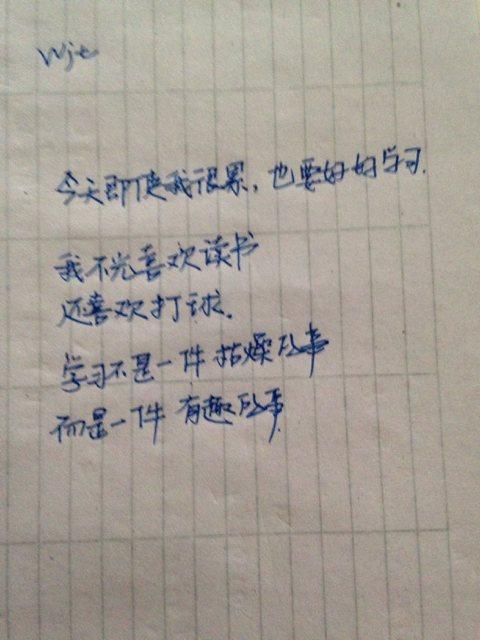 wjt
今天即使我很累，也要好好学习.
我不光喜欢读书
还喜欢打球.
学习不是一件枯燥的事
而是一件 有趣的事.